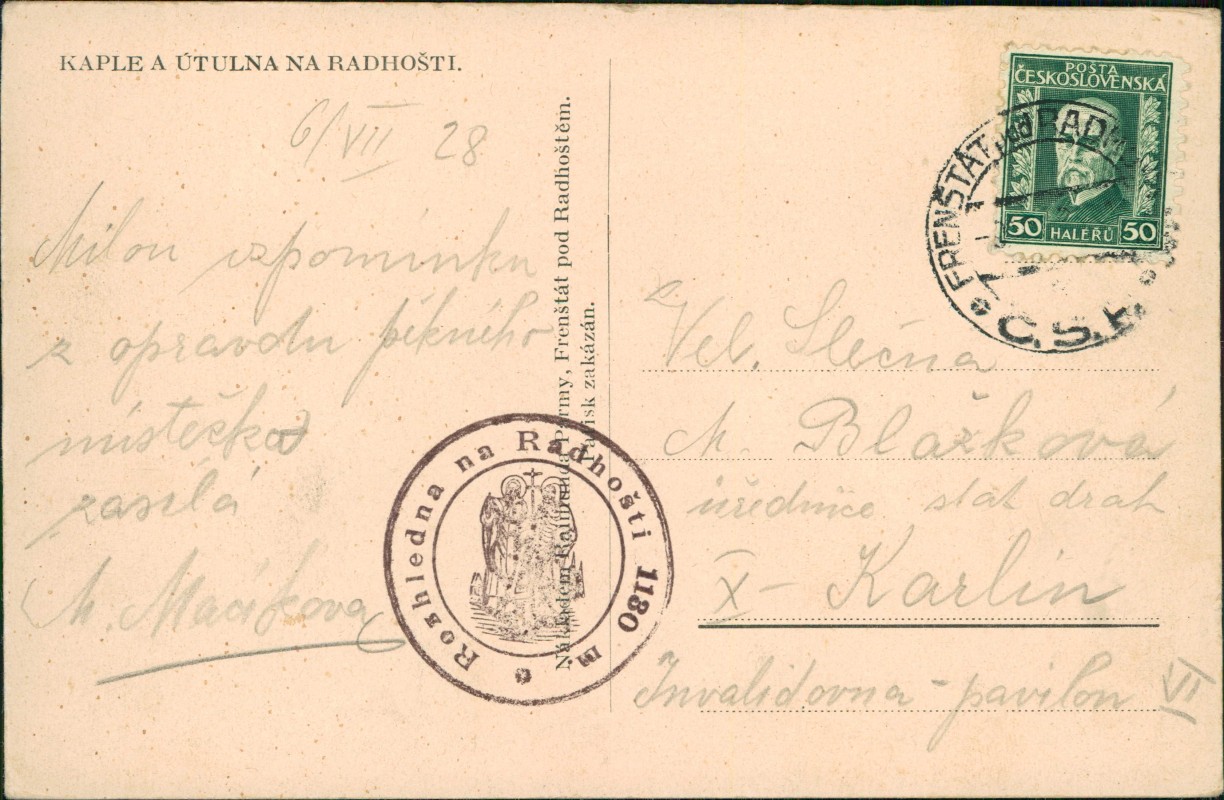 KAPLE A ÚTULNA NA RADHOŠTI.
6/VII 28
Milou vzpomínku
z opravdu pěkného
místečka
zasílá
M. Macíkova
Nákladem Raimunda Parmy, Frenštát pod Radhoštěm.
Patisk zakázán.
Rozhledna na Radhošti 1180 m
POŠTA
ČESKOSLOVENSKÁ
50 HALÉŘŮ 50
FRENŠTÁT pod RADH
Č.S.R.
Vel. Slečna
M. Blažková
úřednice stát drah
X – Karlín
Invalidovna – pavilon VI